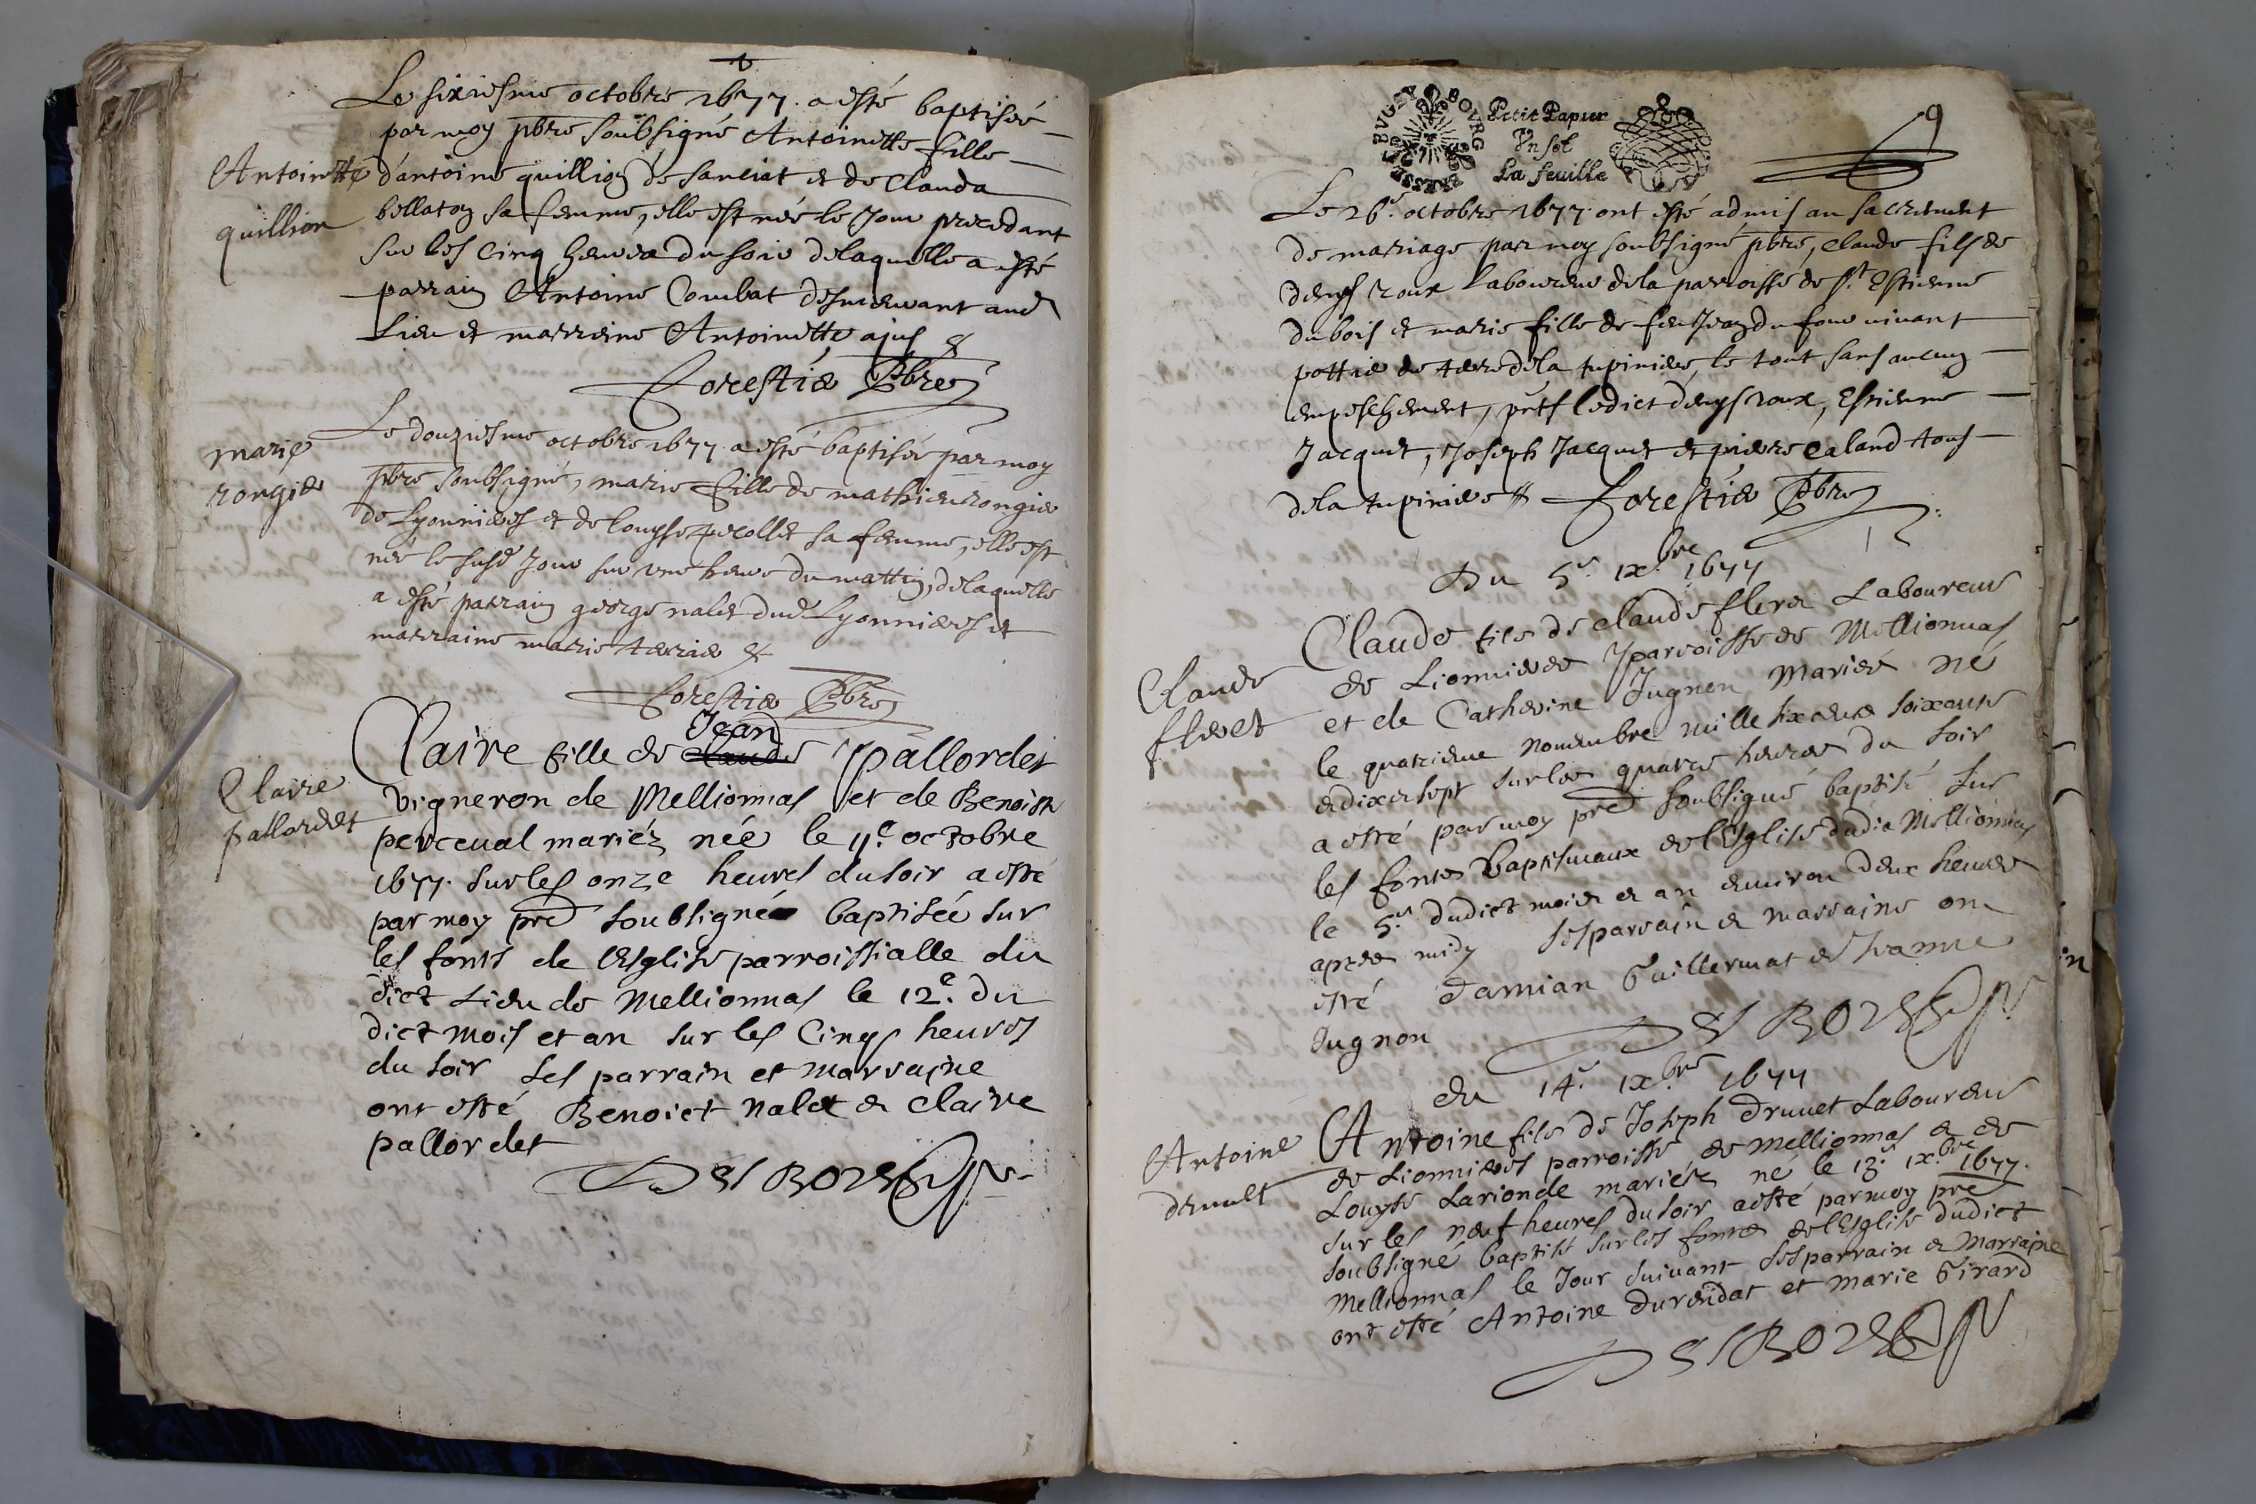 Le sixiesme octobre 1677 a esté baptisée
par moy pbre soubsigné Antoinette fille
Antoinette
quillion
d'antoine quillion de sanciat et de Clauda
bellaton sa femme, elle est née le Jour precedant
sur les cinq heures du soir de laquelle a esté
parrain Antoine Combat demeurant aud
Lieu et marreine Antoinette
Forestier Pbre
marie
rongier
Le douziesme octobre 1677 a esté baptisée par moy
pbre soubsigné, marie fille de mathieu rongier
de Lyonnieres et de Louyse pecollet sa femme, elle est
née le susd Jour sur une heure du mattin, de laquelle
a esté parrain george nalet dud Lyonnieres et
marraine marie terrier
Forestier Pbre
Claire
pallordet
Jean
Claire fille de claude pallordet
vigneron de Mellionnas et de Benoiste
perceval mariéz née le 11e octobre
1677 sur les onze heures du soir a esté
par moy pre soubsigné baptisée sur
les fonts de l'Esglise parroissialle du
dict Lieu de Mellionnas le 12e du
dict mois et an sur les Cinqs heures
du soir ses parrain et marraine
ont esté Benoict nalet et Claire
pallordet
9
BRESSE BVGEY BOVRG
Petit Papier
Vn sol
La feuille
Le 26e octobre 1677 ont esté admis au sacrement
de mariage par moy soubsigné pbre, claude fils de
denys roux Laboureur de la parroisse de St Estienne
du bois et marie fille de feu Jean du four vivant
pottier de terre de la tupiniere, le tout sans aucun
empeschement, pnts ledict denys roux, Estienne
Jacquet, Joseph Jacquet et pierre caland tous
de la tupiniere Forestier Pbre
Du 5e ix.bre 1677
Claude
fleret
Claude fils de claude fleret Laboureur
de Lionnieres parroisse de Mellionnas
et de Catherine Jugnon Mariés né
le quatrieme novembre mille six cents soixante
et dix et sept sur les quatre heures du soir
a esté par moy pre soubsigné baptisé sur
les fonts baptismaux de l'Esglise dudit Mellionnas
le 5e dudict mois et an environ deux heures
apres midy ses parrain et marraine ont
esté Damian Guillermat et Jeanne
Jugnon
du 14e ix.bre 1677
Antoine
druuet
Antoine fils de Joseph druuet Laboureur
de Lionnieres parroisse de mellionnas et de
Louyse Larionde mariéz né le 13e ix.bre 1677.
sur les neuf heures du soir a esté par moy pre
soubsigné baptisé sur les fonts de l'Esglise dudict
Mellionnas le Jour suivant ses parrain et Marraine
ont esté Antoine durendat et marie Girard